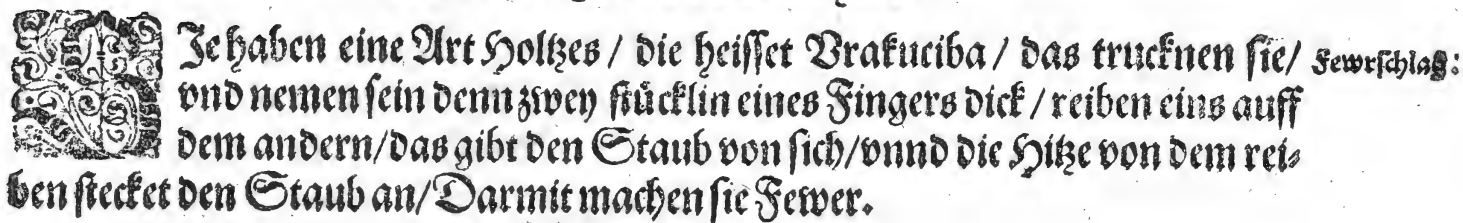 SJe haben eine Art Holtzes / die heisset Vrakueiba / das trucknen sie/ Fewrschlag:
vnd nemen sein denn zwey stücklin eines Fingers dick / reiben eins auff
dem andern/das gibt den Staub von sich/vnnd die Hitze von dem rei⸗
ben stecket den Staub an/Darmit machen sie Fewer.